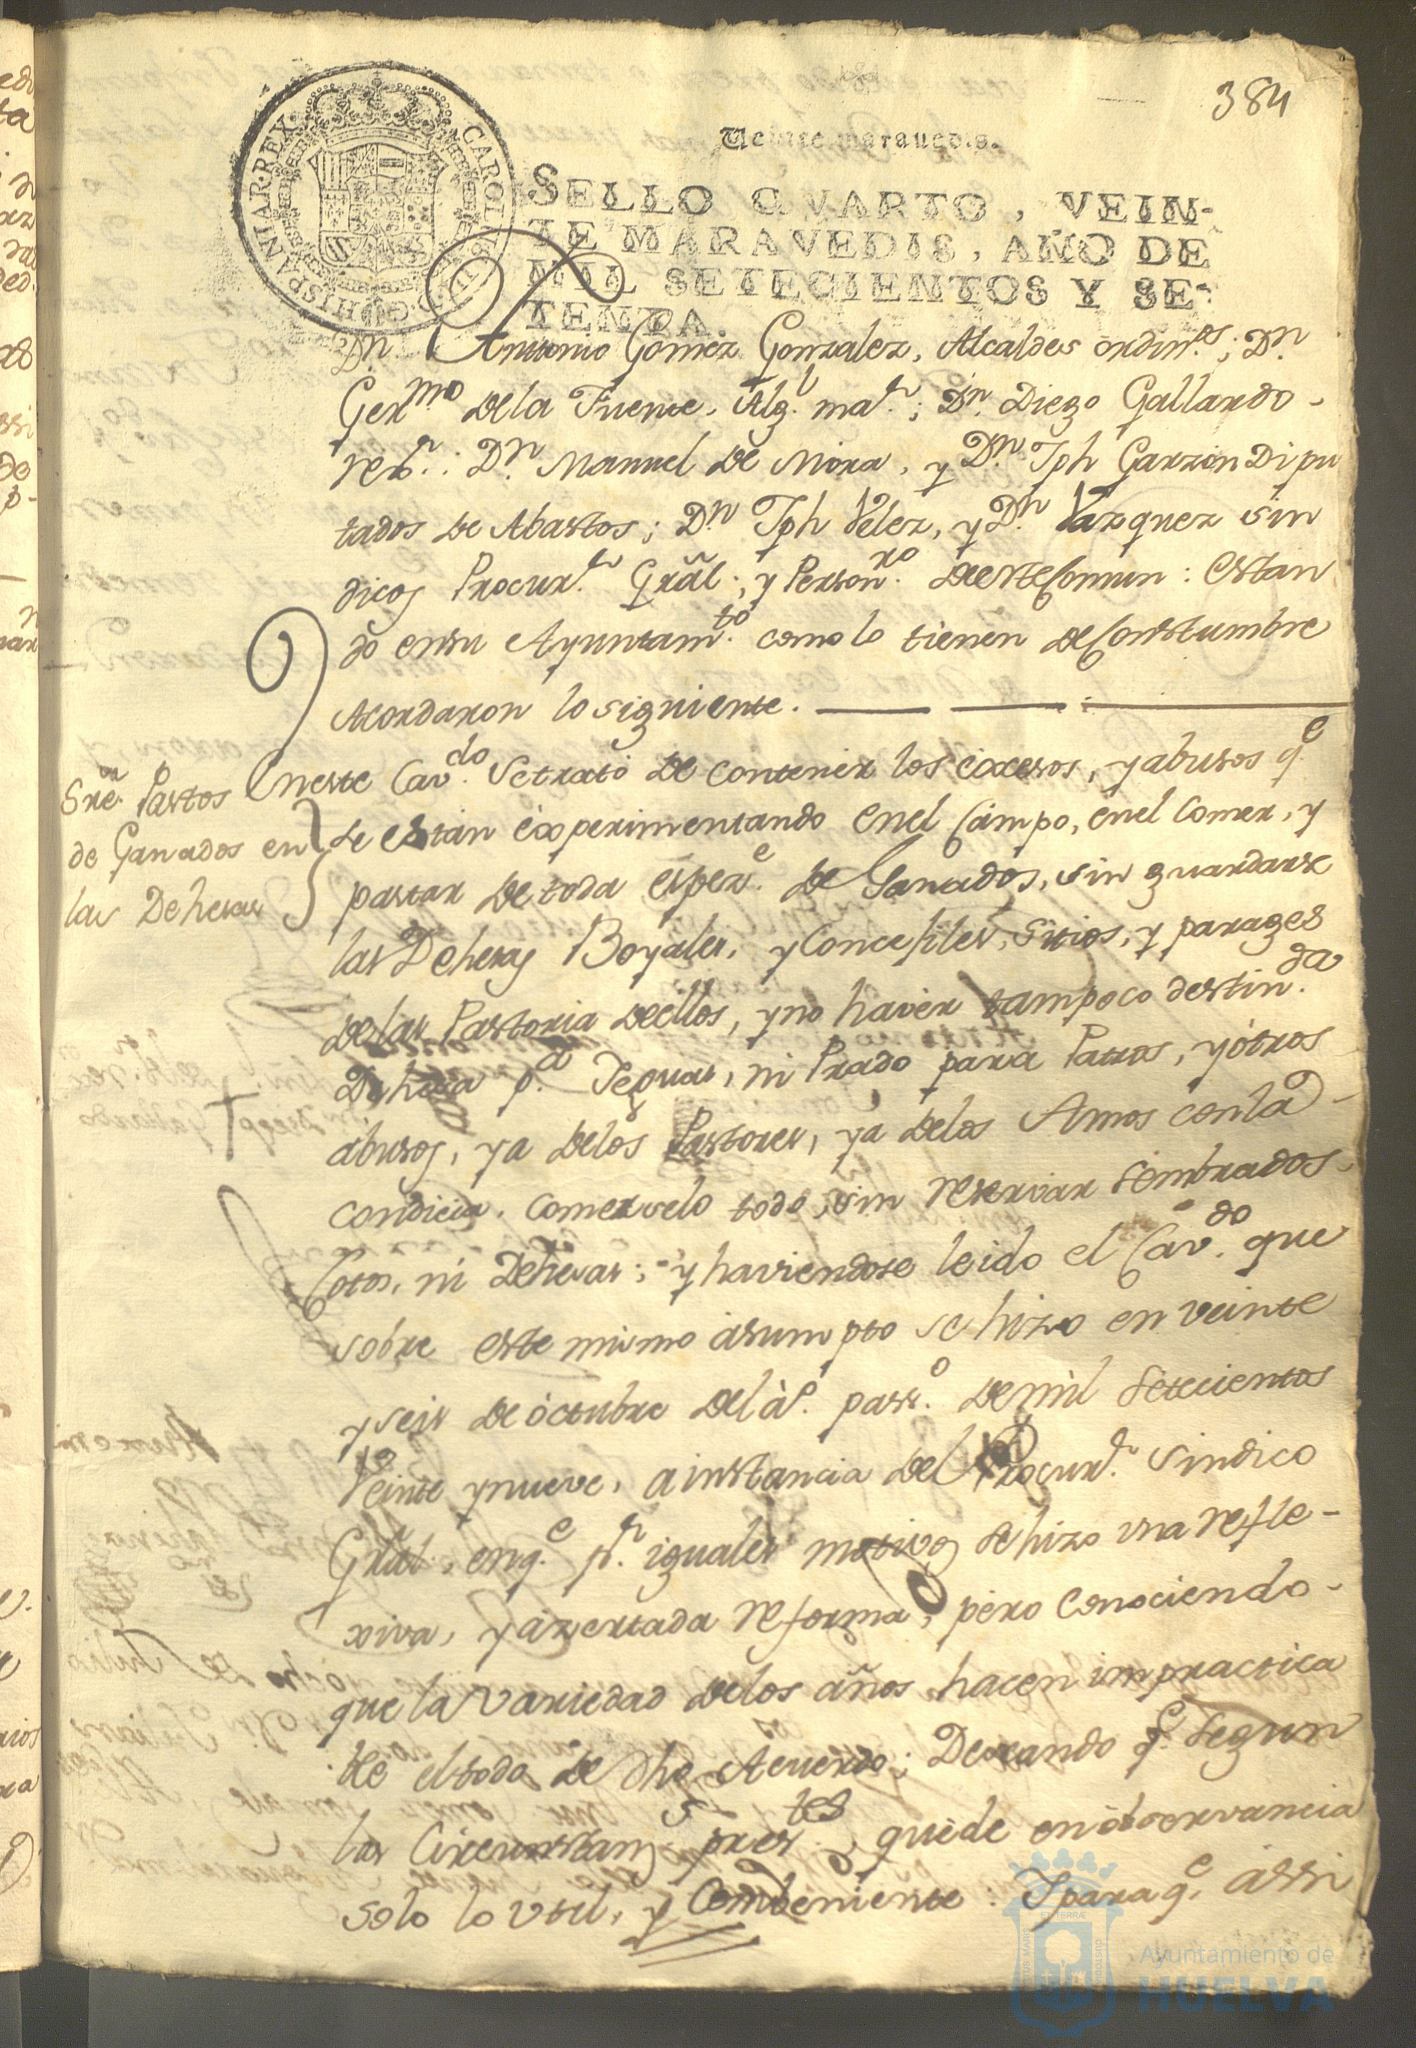 384
Veinte maravedis.
HISPANIAR. REX. CAROL. III. D. G.
SELLO QVARTO, VEIN-
TE MARAVEDIS, AÑO DE
MIL SETECIENTOS Y SE-
TENTA.
Dn. Antonio Gomez Gonzalez, Alcaldes ordinos.; Dn.
Germo de la Fuente, Alg.l mar.; Dn. Diego Gallardo
rexr.; Dn. Manuel de Mora, y Dn. Jph Garzon Dipu
tados de Abastos; Dn Jph Velez, y Dn. Vazquez Sin
dicos Procurr. Gràl; y Personro. deestecomun: estan
do ensu Ayuntamto. como lo tienen decostumbre
Acordaron lo siguiente.
Sre. Pastos
de Ganados en
las Dehesas
Eneste Cavdo. Setrató de contener los excesos, y abusos qe
se están experimentando enel Campo, enel Comer, y
pastar de toda espece. de Ganados, sin guardarse
las Dehesas Boyales, y Concejiles, Sitios, y parages
delas Pastoria deellos, y no haver tampoco destinda.
Dehesa pa. Yeguas, ni Prado para Patros, y ótros
abusos, ya delos Pastores, ya delos Amos conla
condicia. comerselo todo, sin reservar sembrados
Cotos, ni Dehesas; y haviendose leido el Cavdo. que
sobre este mismo asumpto se hizo en veinte
y seis de óctubre del áo. passo. de mil setecientos
Veinte y nueve, a instancia del Procurr. Sindico
Gràl, en qe. pr. iguales motivos se hizo una refle-
xiva, y azertada reforma, pero conociendo
que la variedad delos años hacen impractica
ble el todo de dho Acuerdo; Deseando qe. segun
las Circunstans. prestes., quede en observancia
solo lo util, y Combeniente: Y para qe. assi
Ayuntamiento de
HUELVA